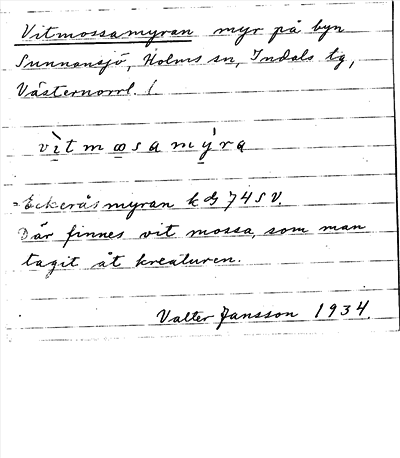 Vitmossamyran myr på byn
Sunnansjö, Holms sn, Indals tg,
Västernorrl. l.
vìtmosamýra
= Eckeråsmyran k bl 74 SV.
Där finnes vit mossa, som man
tagit åt kreaturen.
Valter Jansson 1934.